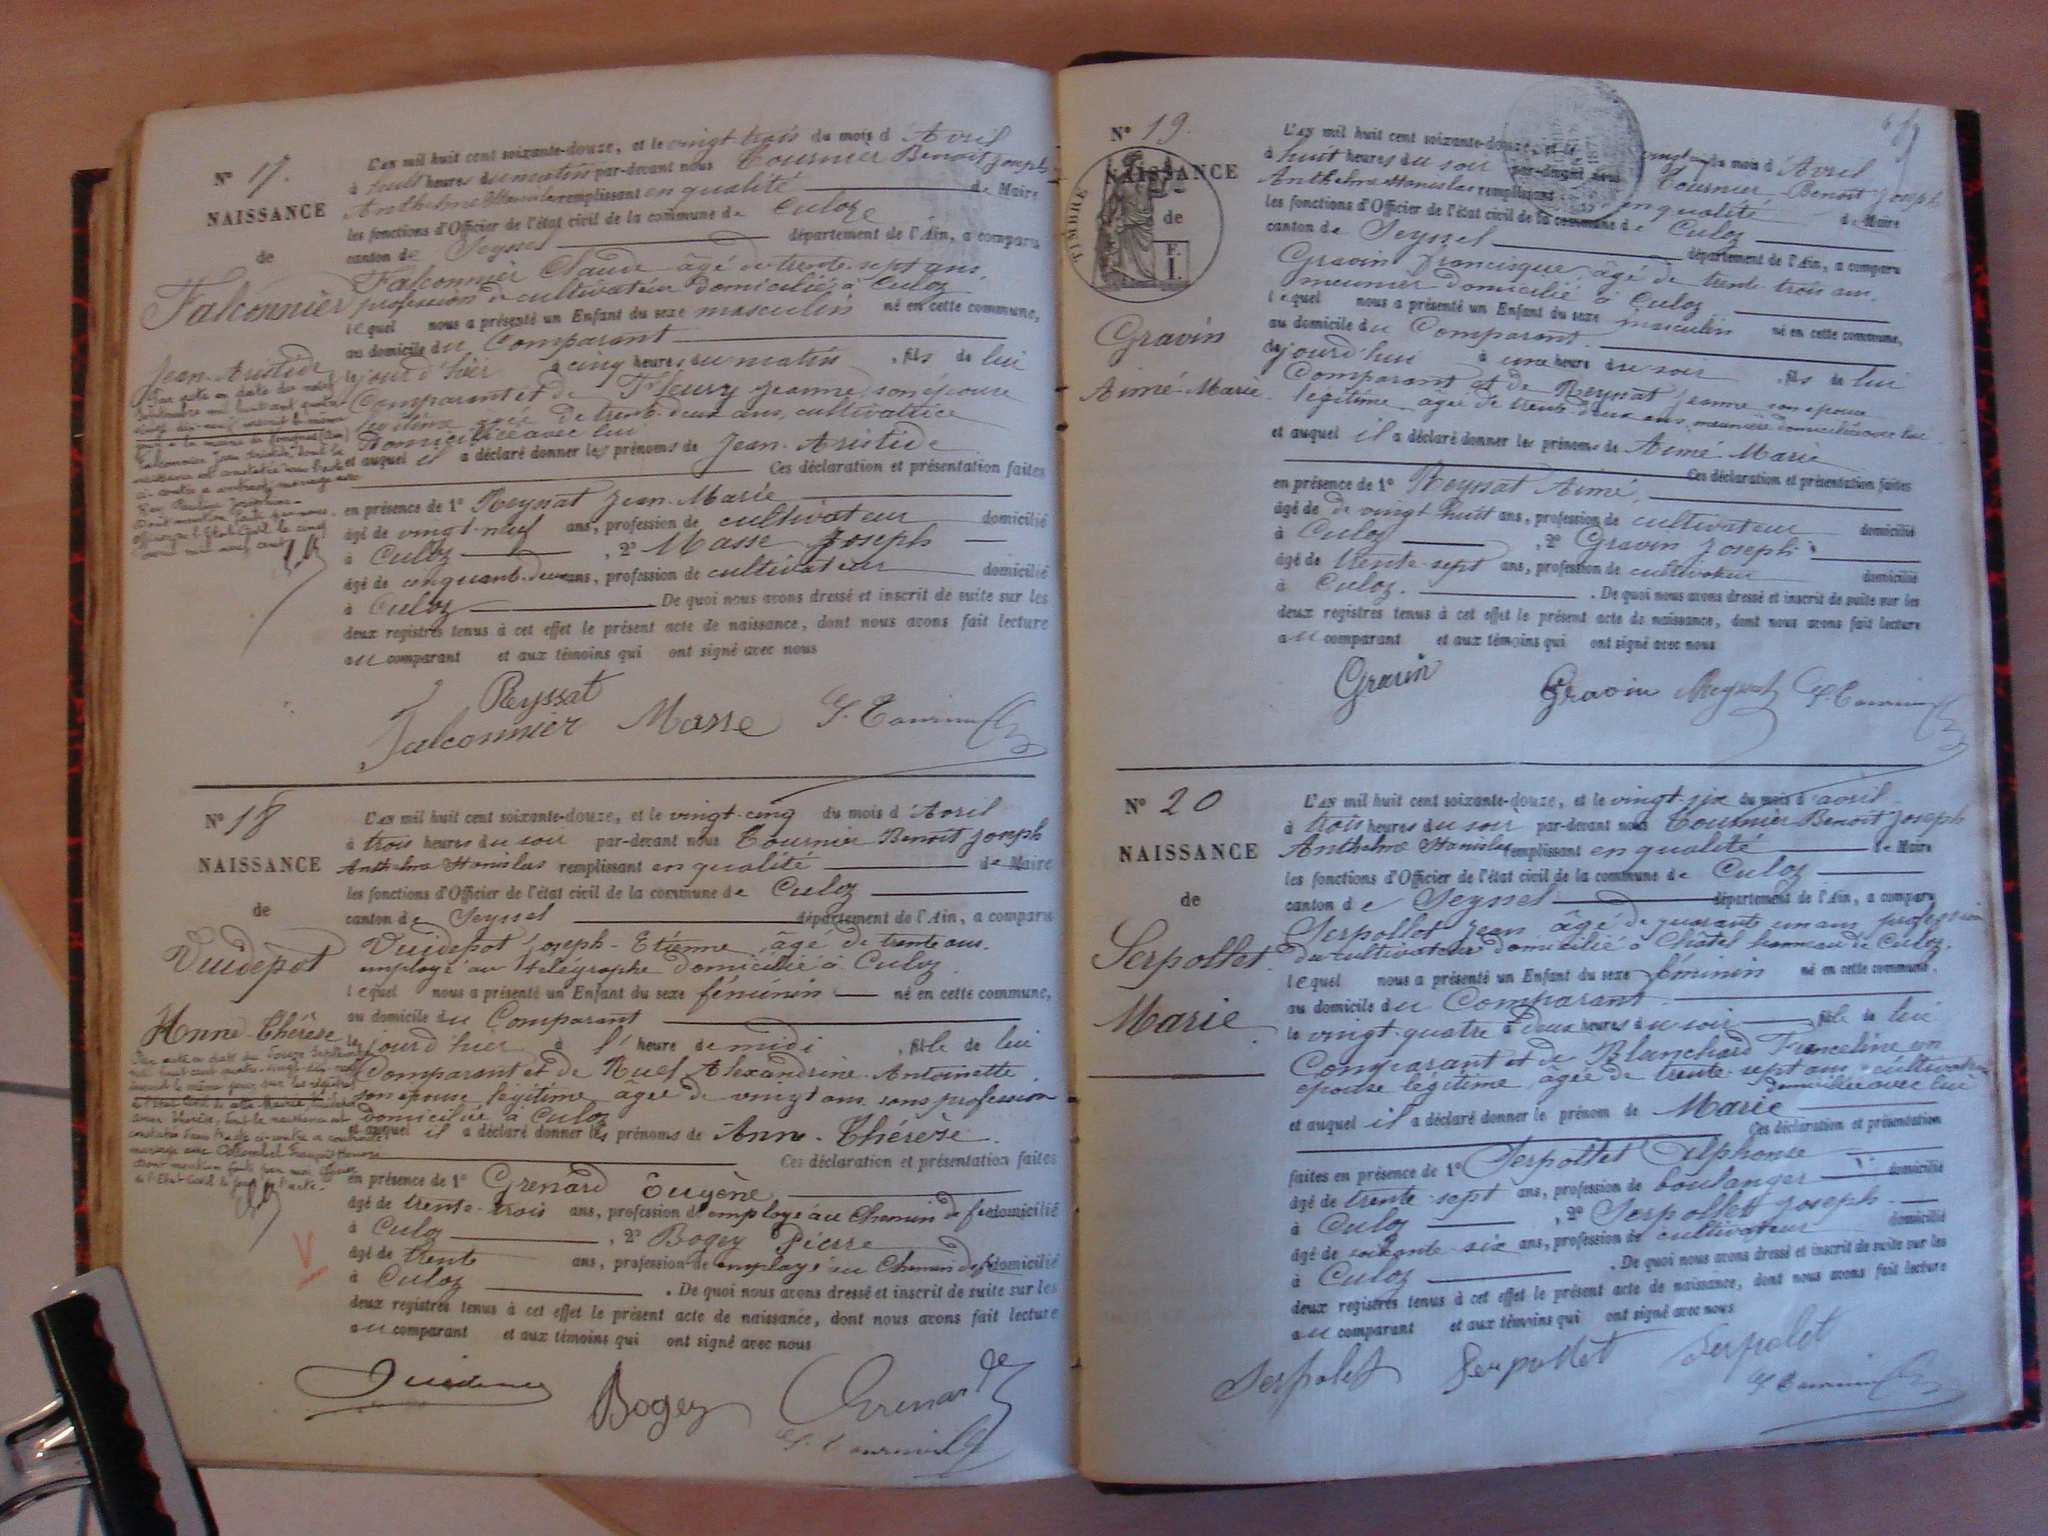 N° 17.
NAISSANCE
de
Falconnier
Jean-Aristide
L'AN mil huit cent soixante-douze, et le vingt-trois du mois d'Avril
à huit heures du matin par-devant nous Tournier Benoit Joseph
Anthelme Stanislas remplissant en qualité de Maire
les fonctions d'Officier de l'état civil de la commune de Culoz
canton de Seyssel département de l'Ain, a comparu
Falconnier Claude âgé de trente-sept ans.
profession de cultivateur domicilié à Culoz
lequel nous a présenté un Enfant du sexe masculin né en cette commune,
au domicile du Comparant
le jour d'hier à cinq heures du matin, fils de lui
Comparant et de Fleury Jeanne, son épouse
légitime âgée de trente-deux ans, cultivatrice
domiciliée avec lui
et auquel il a déclaré donner les prénoms de Jean-Aristide
Ces déclaration et présentation faites
en présence de 1° Reyssat Jean-Marie
âgé de vingt-neuf ans, profession de cultivateur domicilié
à Culoz, 2° Masse Joseph
âgé de cinquante-deux ans, profession de cultivateur domicilié
à Culoz. De quoi nous avons dressé et inscrit de suite sur les
deux registres tenus à cet effet le présent acte de naissance, dont nous avons fait lecture
au comparant et aux témoins qui ont signé avec nous
Reyssat
Falconnier Masse S. Tournier
N° 18
NAISSANCE
de
Vuidepot
Anne-Thérèse
L'AN mil huit cent soixante-douze, et le vingt-cinq du mois d'Avril
à trois heures du soir par-devant nous Tournier Benoit Joseph
Anthelme Stanislas remplissant en qualité de Maire
les fonctions d'Officier de l'état civil de la commune de Culoz
canton de Seyssel département de l'Ain, a comparu
Vuidepot Joseph-Etienne, âgé de trente ans.
employé au télégraphe domicilié à Culoz.
lequel nous a présenté un Enfant du sexe féminin né en cette commune,
au domicile du Comparant
le jour d'hier à l'heure de midi, fille de lui
Comparant et de Ruef Alexandrine-Antoinette
son épouse légitime âgée de vingt ans sans profession
domiciliée à Culoz
et auquel il a déclaré donner les prénoms de Anne-Thérèse.
Ces déclaration et présentation faites
en présence de 1° Grenard Eugène
âgé de trente-trois ans, profession de employé au Chemin de fer domicilié
à Culoz, 2° Bogey Pierre
âgé de trente ans, profession de employé au Chemin de fer domicilié
à Culoz. De quoi nous avons dressé et inscrit de suite sur les
deux registres tenus à cet effet le présent acte de naissance, dont nous avons fait lecture
au comparant et aux témoins qui ont signé avec nous
V
Bogey Grenard
S. Tournier
N° 19.
NAISSANCE
de
TIMBRE
Gravin
Aimé-Marie
L'AN mil huit cent soixante-douze, et le du mois d'Avril
à huit heures du soir par-devant nous Tournier Benoit Joseph
Anthelme Stanislas remplissant en qualité de Maire
les fonctions d'Officier de l'état civil de la commune de Culoz
canton de Seyssel département de l'Ain, a comparu
Gravin Francisque, âgé de trente-trois ans.
meunier domicilié à Culoz
lequel nous a présenté un Enfant du sexe masculin né en cette commune,
au domicile du Comparant.
jourd'hui à une heure du soir, fils de lui
Comparant et de Reyssat Jeanne son épouse
légitime âgée de trente-deux ans, meunière domiciliée avec lui
et auquel il a déclaré donner les prénoms de Aimé-Marie
Ces déclaration et présentation faites
en présence de 1° Reyssat Aimé,
âgé de vingt huit ans, profession de cultivateur domicilié
à Culoz, 2° Gravin Joseph
âgé de trente-sept ans, profession de cultivateur domicilié
à Culoz. De quoi nous avons dressé et inscrit de suite sur les
deux registres tenus à cet effet le présent acte de naissance, dont nous avons fait lecture
au comparant et aux témoins qui ont signé avec nous
Gravin Gravin Reyssat S. Tournier
N° 20
NAISSANCE
de
Serpollet
Marie
L'AN mil huit cent soixante-douze, et le vingt-six du mois d'avril
à trois heures du soir par-devant nous Tournier Benoit Joseph
Anthelme Stanislas remplissant en qualité de Maire
les fonctions d'Officier de l'état civil de la commune de Culoz
canton de Seyssel département de l'Ain, a comparu
Serpollet Jean âgé de quarante un ans profession
de cultivateur domicilié à Châtel hameau de Culoz.
lequel nous a présenté un Enfant du sexe féminin né en cette commune,
au domicile du Comparant.
le vingt-quatre à deux heures du soir, fille de lui
Comparant et de Blanchard Franceline son
épouse légitime, âgée de trente-sept ans, cultivatrice
domiciliée avec lui
et auquel il a déclaré donner le prénom de Marie
Ces déclaration et présentation
faites en présence de 1° Serpollet Alphonse
âgé de trente-sept ans, profession de boulanger domicilié
à Culoz, 2° Serpollet Joseph.
âgé de soixante-six ans, profession de cultivateur domicilié
à Culoz. De quoi nous avons dressé et inscrit de suite sur les
deux registres tenus à cet effet le présent acte de naissance, dont nous avons fait lecture
au comparant et aux témoins qui ont signé avec nous
Serpolet Serpollet Serpolet
S. Tournier